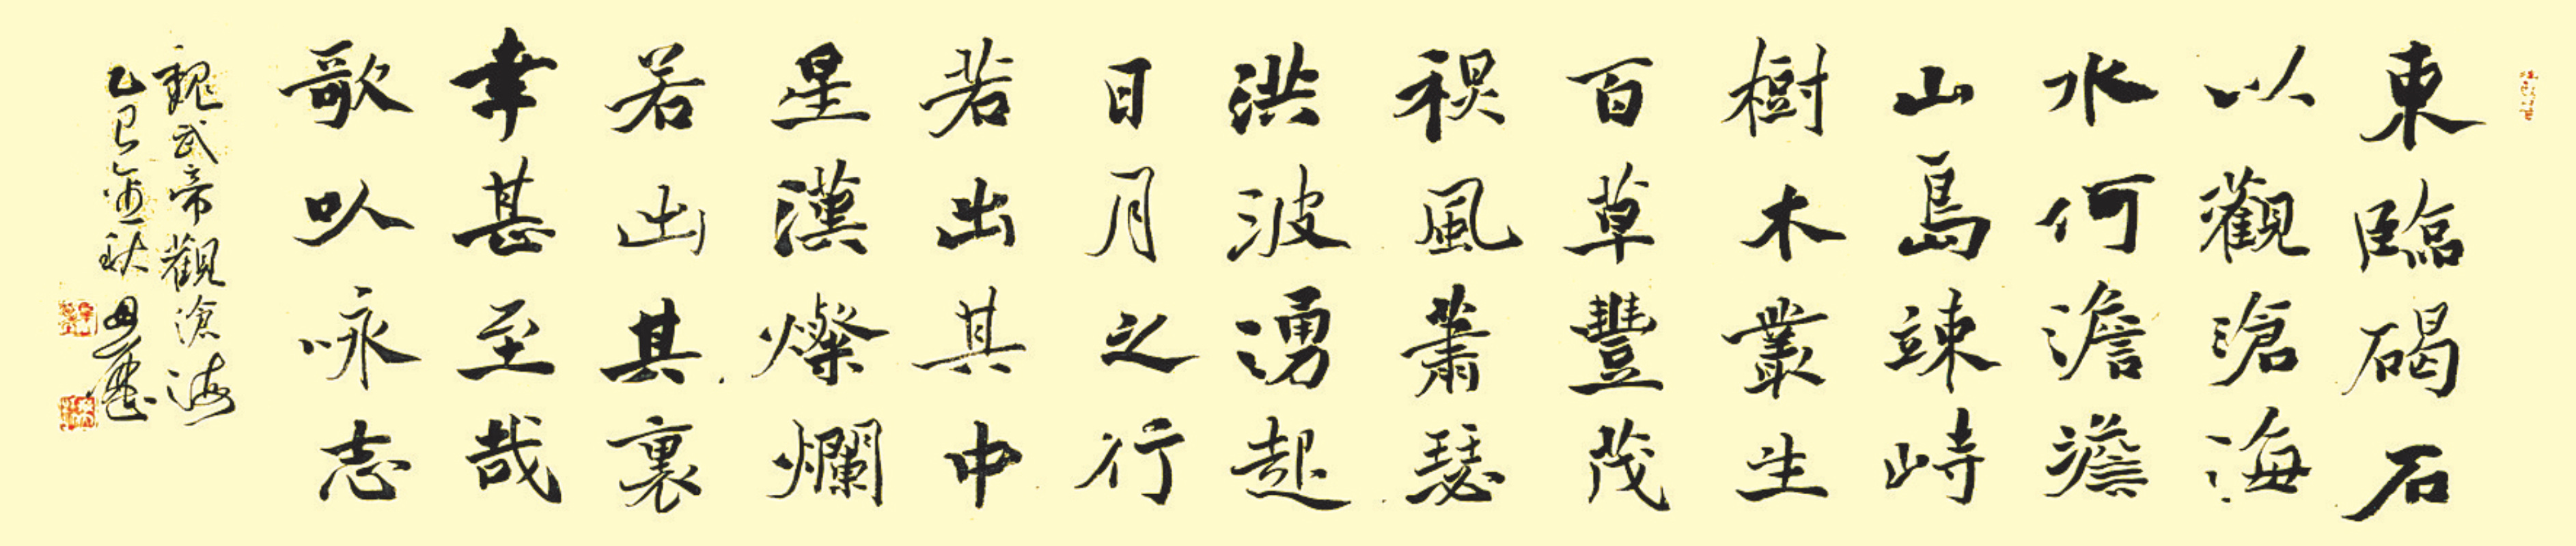 東臨碣石
以觀滄海
水何澹澹
山島竦峙
樹木叢生
百草豐茂
秋風蕭瑟
洪波湧起
日月之行
若出其中
星漢燦爛
若出其裏
幸甚至哉
歌以咏志
魏武帝觀滄海
乙巳金秋